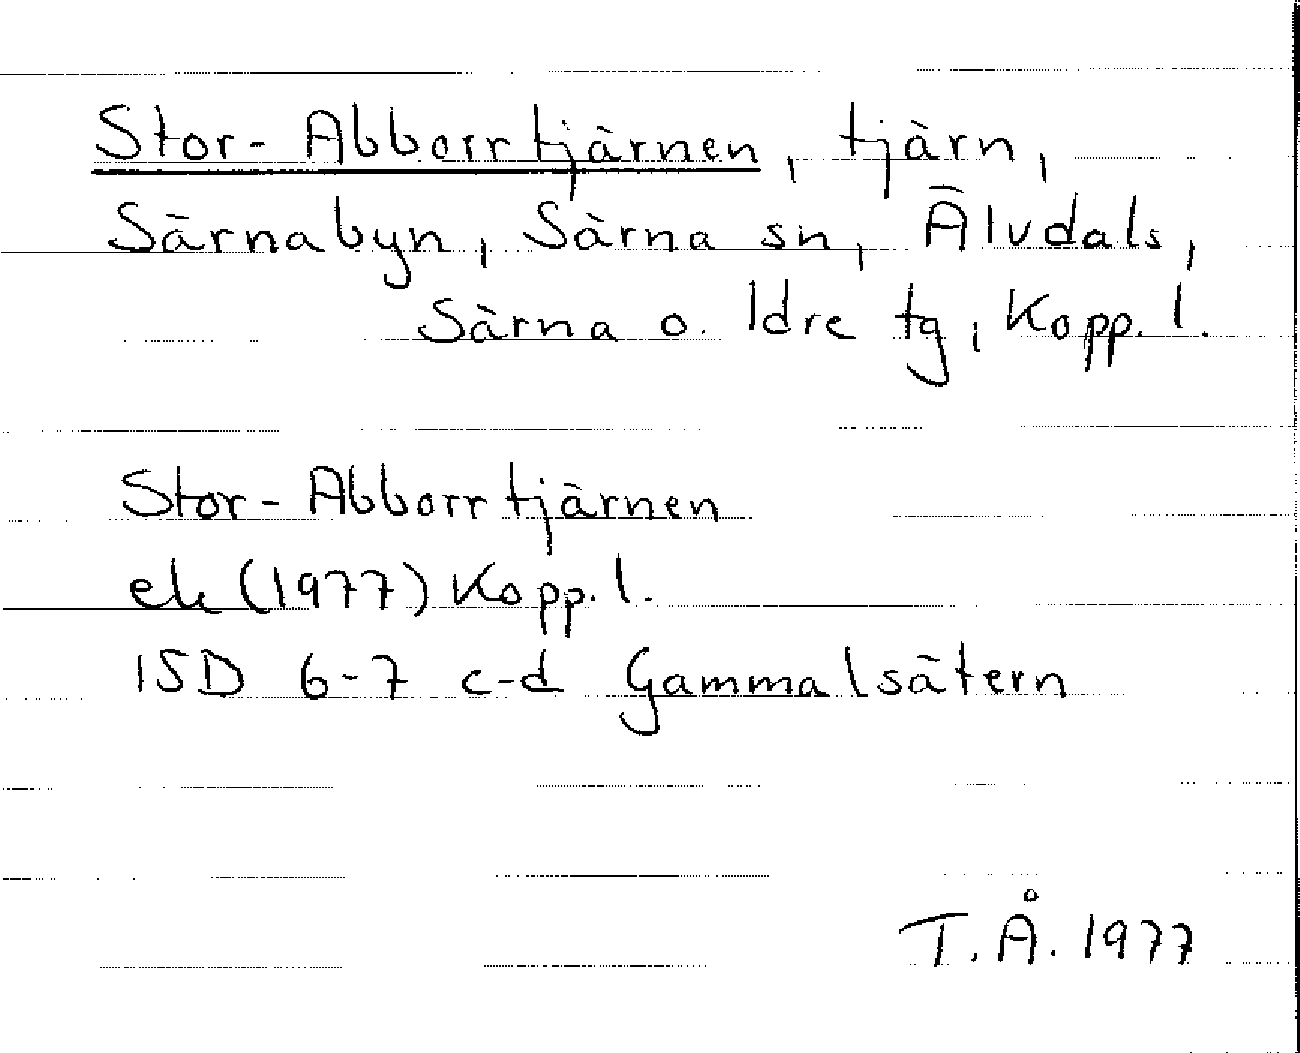 Stor-Abborrtjärnen, tjärn,
Särnabyn, Särna sn, Älvdals,
Särna o. Idre tg, Kopp. l.
Stor-Abborrtjärnen
ek (1977) Kopp. l.
15D 6-7 c-d Gammalsätern
T.Å. 1977